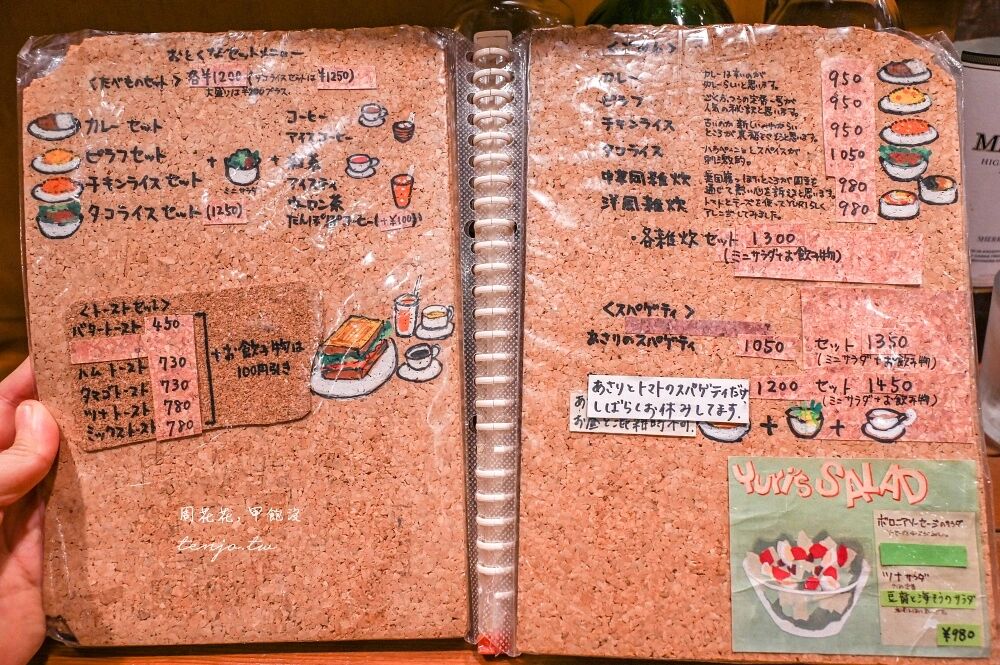 おとくなセットメニュー
<たべものセット> 各¥1200 (タコライスセットは¥1250)
大盛りは¥200プラス
カレーセット
ピラフセット
チキンライスセット
タコライスセット (1250)
+
ミニサラダ
+
コーヒー
アイスコーヒー
紅茶
アイスティ
ウーロン茶
たんぽぽコーヒー(+¥100)
<トーストセット>
バタートースト 450
ハムトースト 730
タマゴトースト 730
ツナトースト 780
ミックストースト 780
+お飲み物は
100円引き
周花花,甲飽沒
tenjo.tw
カレー 950
ピラフ 950
チキンライス 950
タコライス 1050
中華風雑炊 980
洋風雑炊 980
・各雑炊セット 1300
(ミニサラダ+お飲み物)
<スパゲティ>
あさりのスパゲティ 1050 セット 1350
(ミニサラダ+お飲み物)
あさりとトマトのスパゲティだけ
しばらくお休みしてます.
1200 セット 1450
(ミニサラダ+お飲み物)
+ +
YURI'S SALAD
ボロニアソーセージのサラダ
ツナサラダ
豆腐と海そうのサラダ
¥980